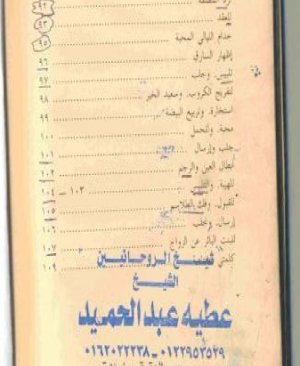 ٩٢
للعقد
٩٣
خدام الليالي المحبة
٩٥
إظهار السارق
٩٦
تلبيس، وجلب
٩٧
لتفريج الكروب، وسعيد الخير
٩٨
استخارة، وتربيع البيضة
٩٩
محبة، وللحمل
١٠٠
جلب وإرسال
١٠١
إبطال العين والرجم
١٠٢
للهيبة، و
١٠٣ - ١٠٤
للقبول، وفك الطلاسم
١٠٥
إرسال، وجلب
١٠٦
للبنت البائر عن الزواج
١٠٧
١٠٩
شيخ الروحانيين
الشيخ
عطيه عبد الحميد
٠١٢٢٩٥٣٥٢٩ - ٠١٦٢٠٢٢٢٣٨